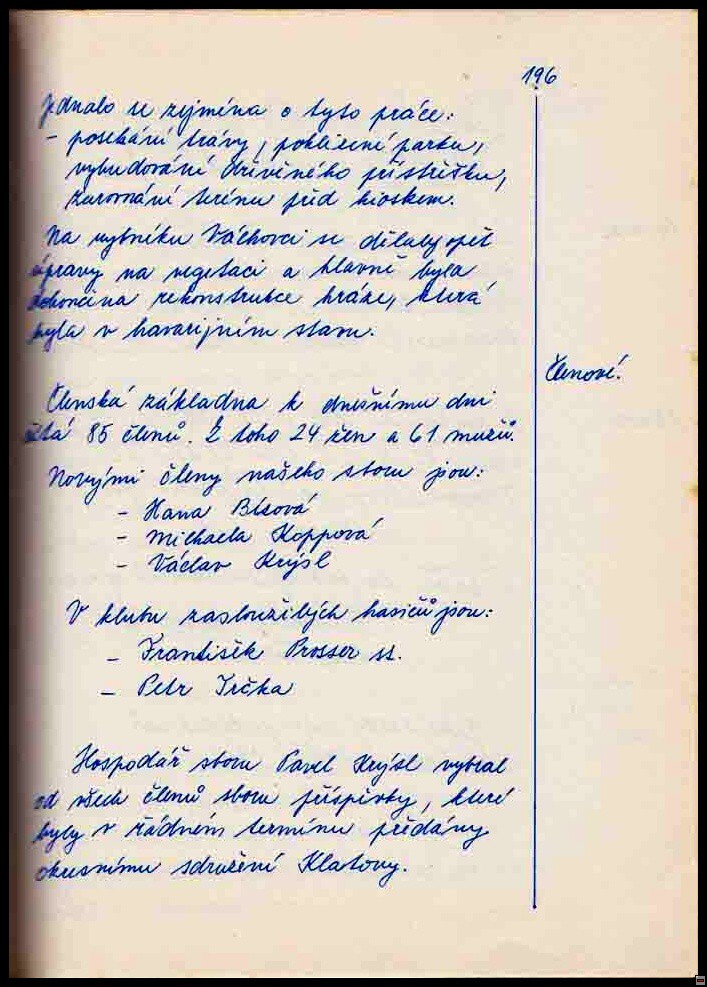 196
Jednalo se zejména o tyto práce:
- posekání trávy, poklizení parku,
vybudování dřevěného přístřešku,
zarovnání terénu před kioskem.
Na rybníku Váchovci se dělaly opět
úpravy na vegetaci a hlavně byla
dokončina rekonstrukce hráze, která
byla v havarijním stavu.
Členové.
Členská základna k dnešnímu dni
čítá 85 členů. Z toho 24 žen a 61 mužů.
Novými členy našeho sboru jsou:
- Hana Bísová
- Michaela Koppová
- Václav Krýsl
V klubu zasloužilých hasičů jsou:
- František Prosser st.
- Petr Trčka
Hospodář sboru Pavel Krýsl vybral
od všech členů sboru příspěvky, které
byly v řádném termínu předány
okresnímu sdružení Klatovy.